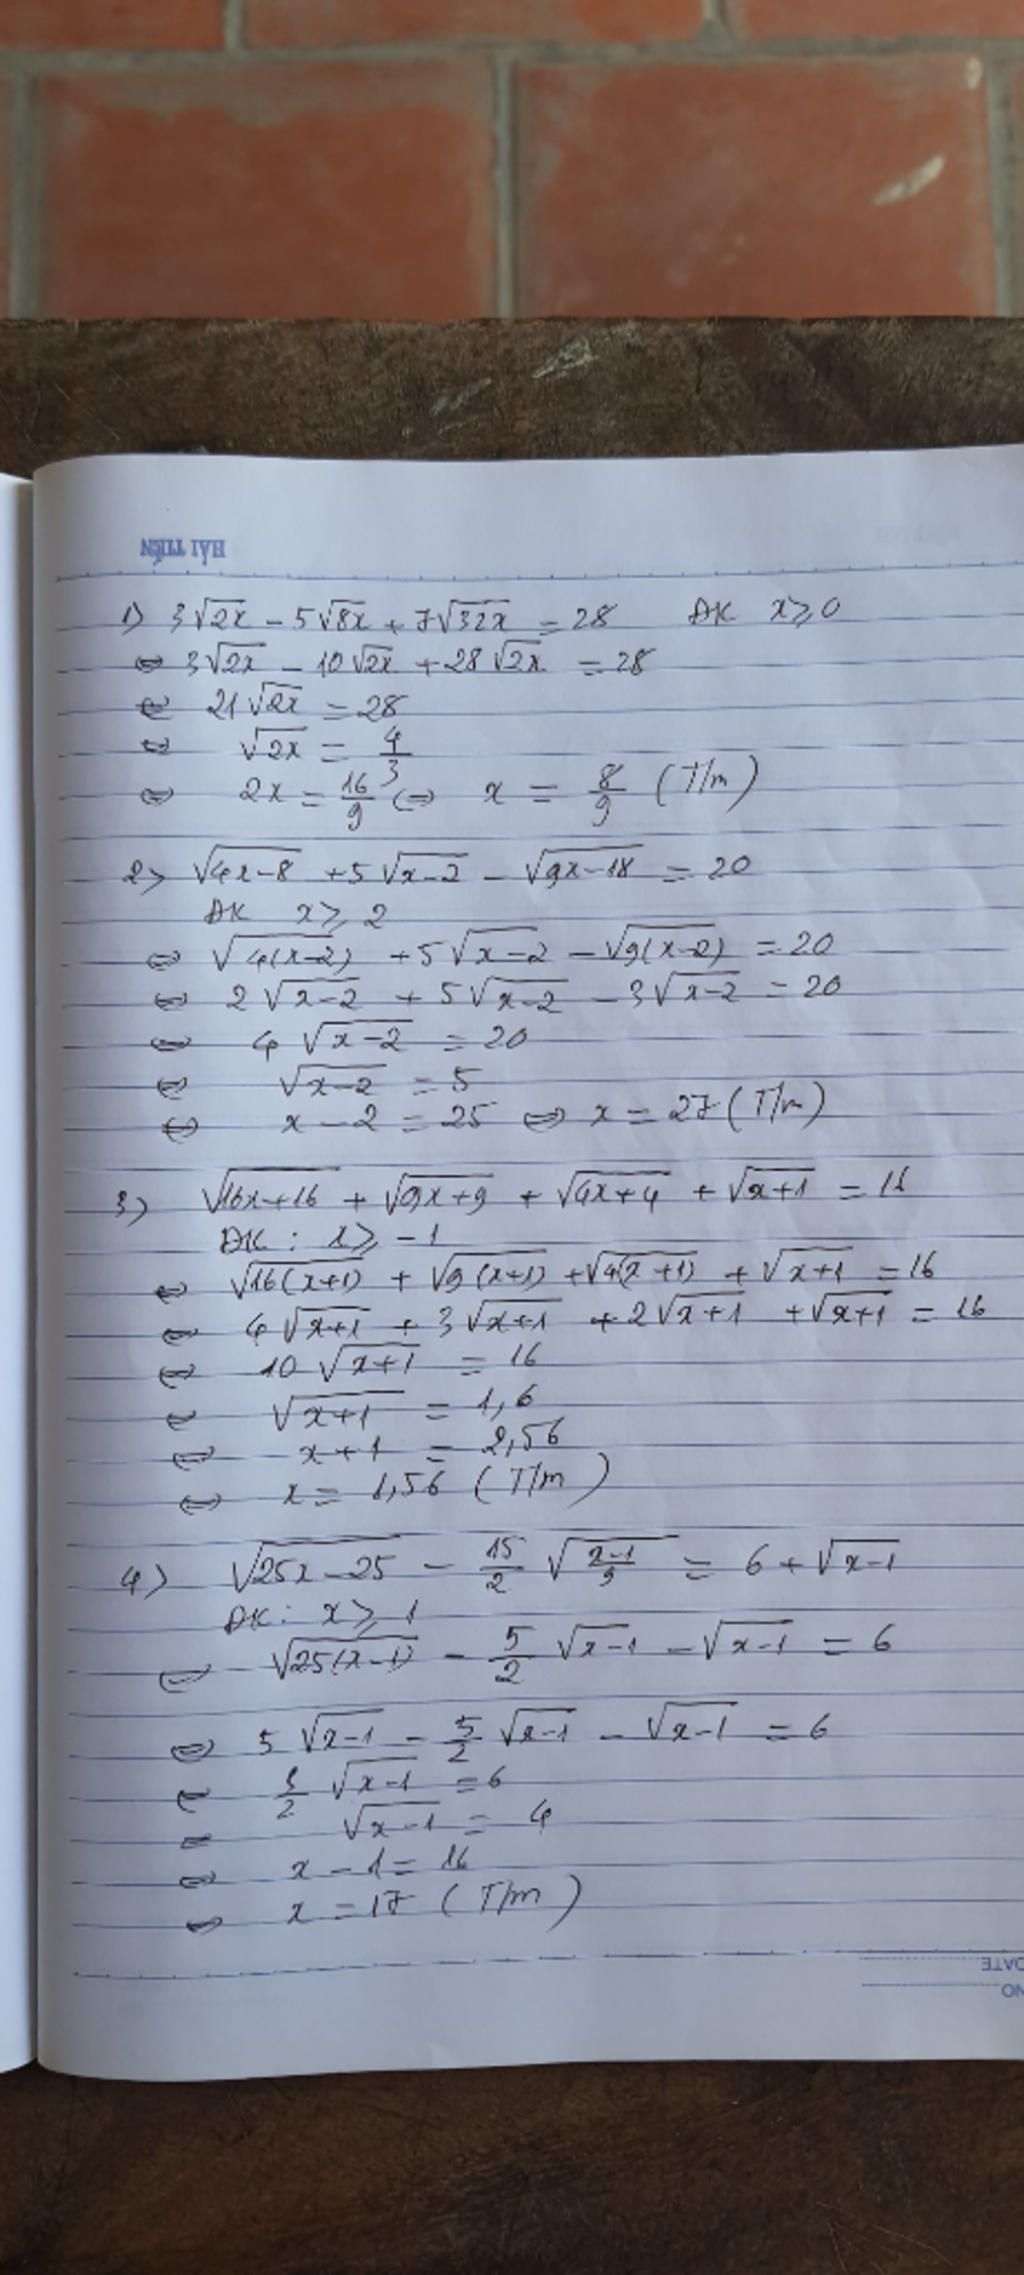 HẢI TIẾN
1) 3√2x - 5√8x + 7√32x = 28 ĐK x ≥ 0
⇔ 3√2x - 10√2x + 28√2x = 28
⇔ 21√2x = 28
⇔ √2x = 4/3
⇔ 2x = 16/9 ⇔ x = 8/9 (T/m)
2) √4x-8 + 5√x-2 - √9x-18 = 20
ĐK x ≥ 2
⇔ √4(x-2) + 5√x-2 - √9(x-2) = 20
⇔ 2√x-2 + 5√x-2 - 3√x-2 = 20
⇔ 4√x-2 = 20
⇔ √x-2 = 5
⇔ x - 2 = 25 ⇔ x = 27 (T/m)
3) √16x+16 + √9x+9 + √4x+4 + √x+1 = 16
ĐK: x ≥ -1
⇔ √16(x+1) + √9(x+1) + √4(x+1) + √x+1 = 16
⇔ 4√x+1 + 3√x+1 + 2√x+1 + √x+1 = 16
⇔ 10√x+1 = 16
⇔ √x+1 = 1,6
⇔ x+1 = 2,56
⇔ x = 1,56 (T/m)
4) √25x-25 - 15/2 √x-1/9 = 6 + √x-1
ĐK: x ≥ 1
⇔ √25(x-1) - 5/2 √x-1 - √x-1 = 6
⇔ 5√x-1 - 5/2 √x-1 - √x-1 = 6
⇔ 3/2 √x-1 = 6
⇔ √x-1 = 4
⇔ x - 1 = 16
⇔ x = 17 (T/m)
DATE
NO